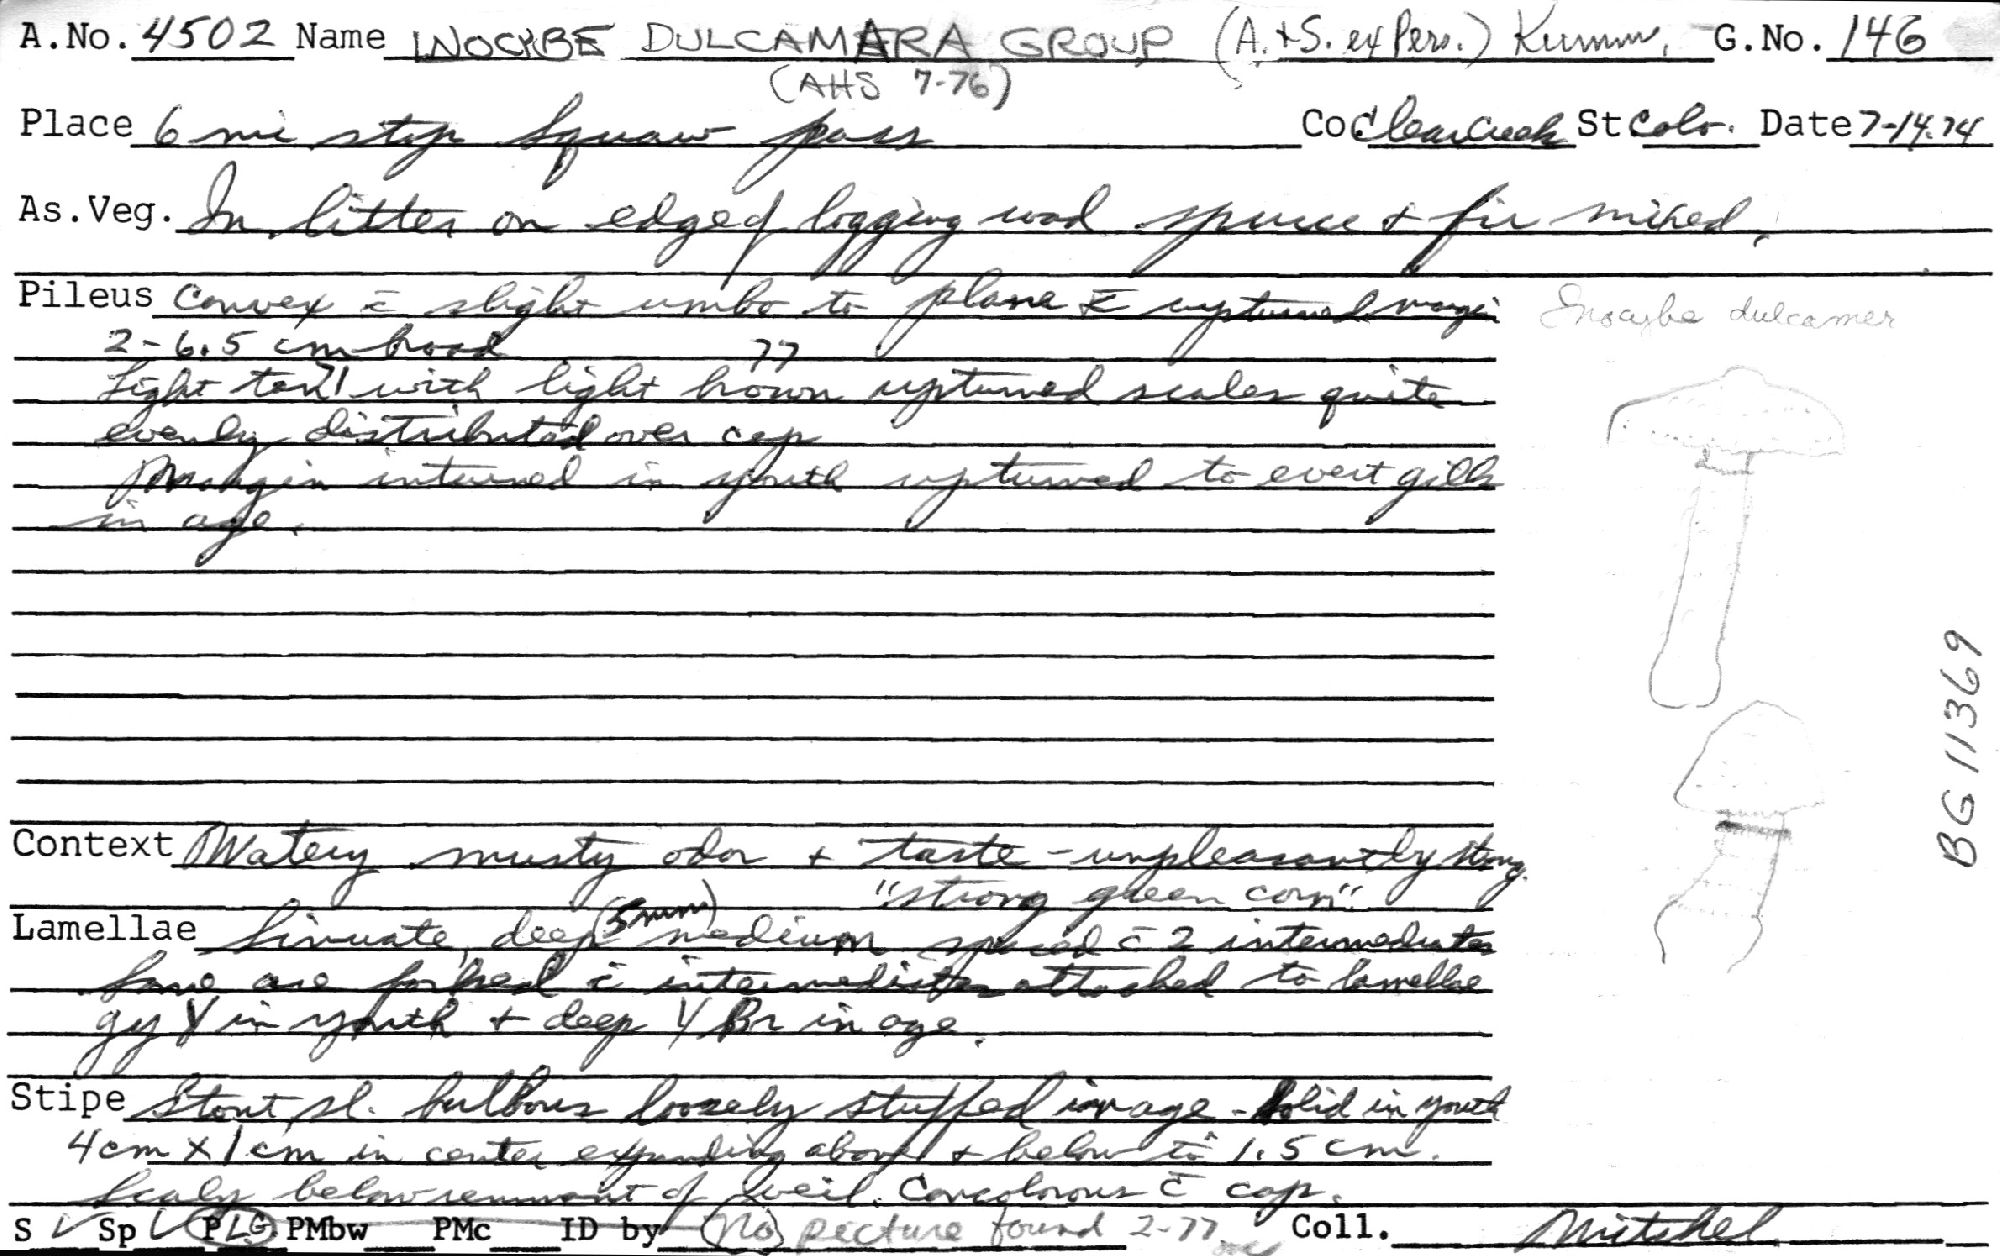 A.No. 4502 Name INOCYBE DULCAMARA GROUP (A.+S. ex Pers.) Kumm. G.No. 146
(AHS 7-76)
Place 6 mi stop Squaw pass Co Clear Creek St Colo. Date 7-14.74
As.Veg. In litter on edge of logging road spruce + fir mixed.
Pileus Convex c̄ slight umbo to plane c̄ upturned margin
2-6.5 cm broad 77
Light tan 77 with light brown upturned scales quite
evenly distributed over cap
Margin inturned in youth upturned to evert gills
in age.
Inocybe dulcamer
BG 11369
Context Watery musty odor + taste - unpleasantly strong.
"strong green corn"
Lamellae Sinuate, deep (5mm) medium spaced c̄ 2 intermediates
Some are forked c̄ intermediates attached to lamellae
gy Y in youth + deep Y Br in age.
Stipe Stout sl. bulbous loosely stuffed in age - solid in youth
4cm X 1cm in center expanding above + below to 1.5 cm.
Scaly below remnant of veil. Concolorous c̄ cap.
S ✓ Sp ✓ PLG PMbw PMc ID by (No) picture found 2-77 Coll. Mitchel